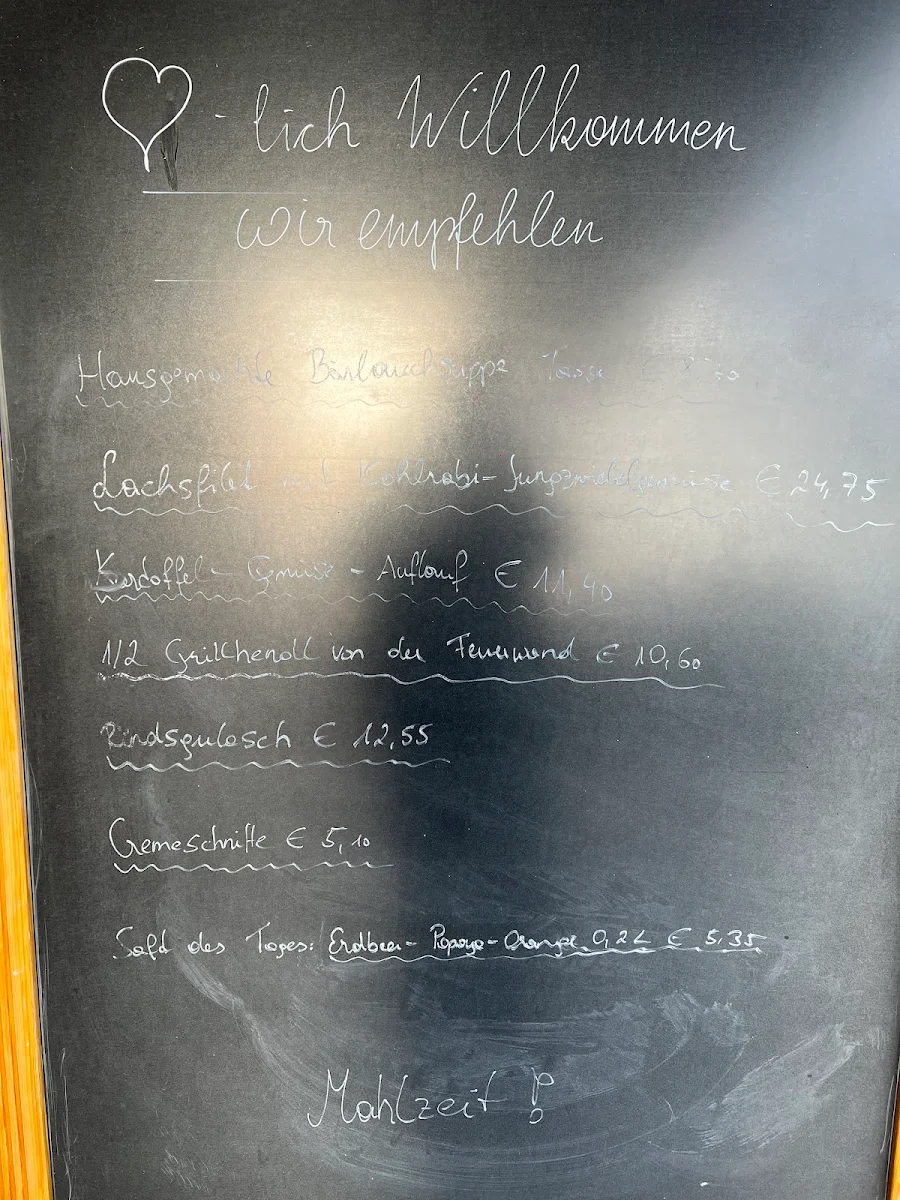 -lich Willkommen
wir empfehlen
Hausgemachte Bärlauchsuppe Tasse €
Lachsfilet mit Kohlrabi-Jungzwiebelgemüse € 24,75
Kartoffel-Gemüse-Auflauf € 11,40
1/2 Grillhendl von der Feuerwand € 10,60
Rindsgulasch € 12,55
Cremeschnitte € 5,10
Saft des Tages: Erdbeer-Papaya-Orange 0,2L € 5,35
Mahlzeit!